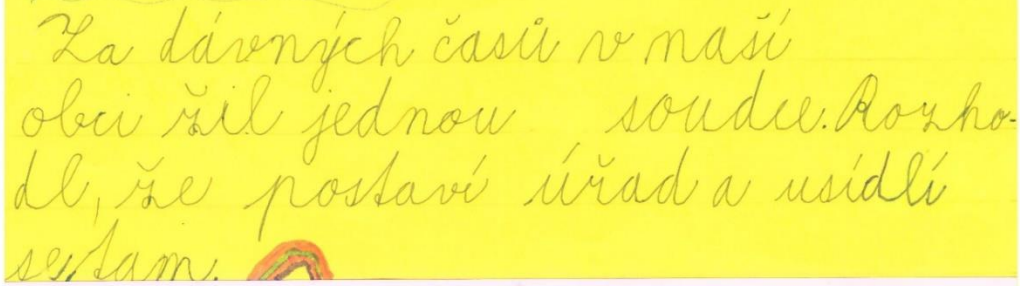 Za dávných časů v naší
obci žil jednou soudce. Rozho-
dl, že postaví úřad a usídlí
se tam.